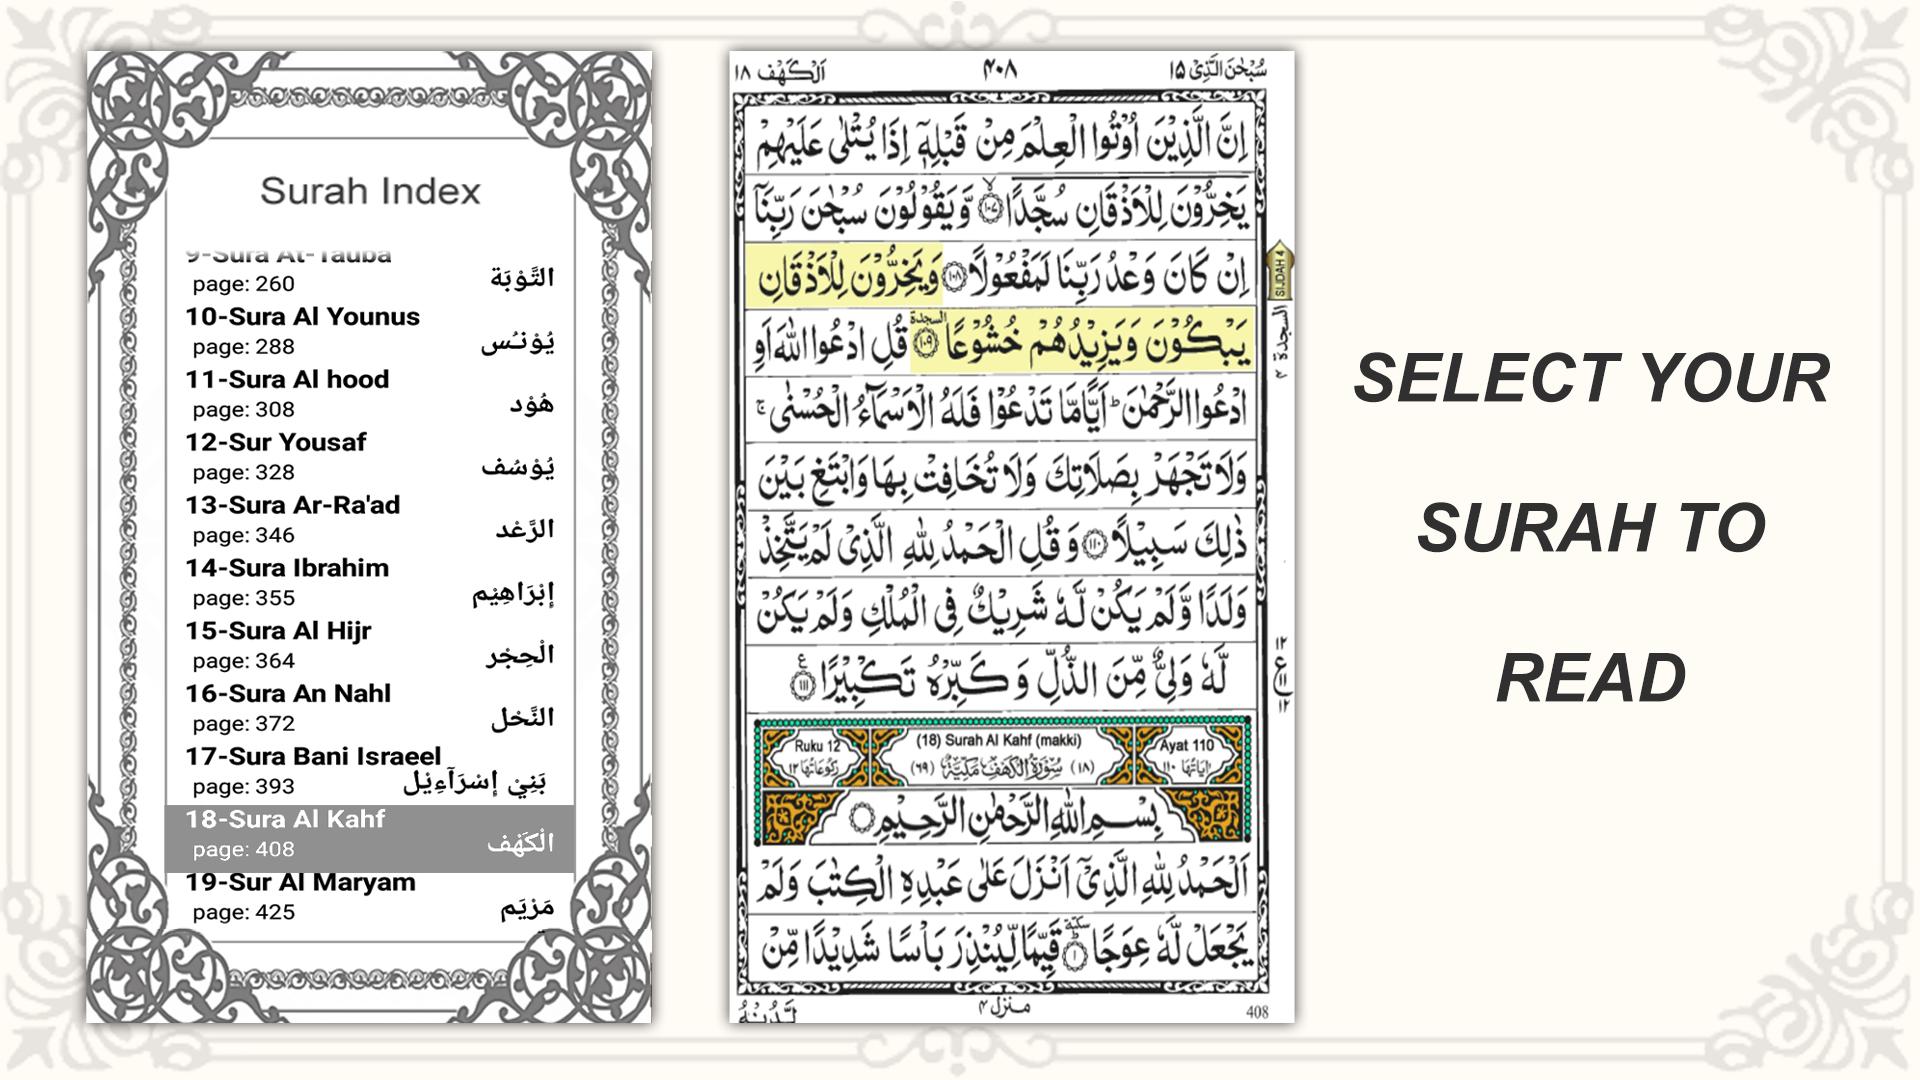 Surah Index
9-Sura At-Tauba
page: 260 التَّوْبَة
10-Sura Al Younus
page: 288 يُوْنـُس
11-Sura Al hood
page: 308 هُوْد
12-Sur Yousaf
page: 328 يُوْسُف
13-Sura Ar-Ra'ad
page: 346 الرَّعْد
14-Sura Ibrahim
page: 355 إبْرَاهِيْم
15-Sura Al Hijr
page: 364 الْحِجْر
16-Sura An Nahl
page: 372 النَّحْل
17-Sura Bani Israeel
page: 393 بَنِيْ إسْرَآءِيْل
18-Sura Al Kahf
page: 408 الْكَهْف
19-Sur Al Maryam
page: 425 مَرْيَم
سُبْحٰنَ الَّذِیْ ۱۵ ۴۰۸ اَلْكَهْف ۱۸
اِنَّ الَّذِیْنَ اُوْتُوا الْعِلْمَ مِنْ قَبْلِهٖۤ اِذَا یُتْلٰى عَلَیْهِمْ
یَخِرُّوْنَ لِلْاَذْقَانِ سُجَّدًا ۱۰۷ وَّیَقُوْلُوْنَ سُبْحٰنَ رَبِّنَاۤ
اِنْ كَانَ وَعْدُ رَبِّنَا لَمَفْعُوْلًا ۱۰۸ وَیَخِرُّوْنَ لِلْاَذْقَانِ
SIJDAH 4
یَبْكُوْنَ وَیَزِیْدُهُمْ خُشُوْعًا ۱۰۹ السجدة قُلِ ادْعُوا اللّٰهَ اَوِ
السجدة ۴
ادْعُوا الرَّحْمٰنَ ؕ اَیًّا مَّا تَدْعُوْا فَلَهُ الْاَسْمَآءُ الْحُسْنٰى ۚ
وَلَا تَجْهَرْ بِصَلَاتِكَ وَلَا تُخَافِتْ بِهَا وَابْتَغِ بَیْنَ
ذٰلِكَ سَبِیْلًا ۱۱۰ وَقُلِ الْحَمْدُ لِلّٰهِ الَّذِیْ لَمْ یَتَّخِذْ
وَلَدًا وَّلَمْ یَكُنْ لَّهٗ شَرِیْكٌ فِی الْمُلْكِ وَلَمْ یَكُنْ
لَّهٗ وَلِیٌّ مِّنَ الذُّلِّ وَكَبِّرْهُ تَكْبِیْرًا ۱۱۱ ع
۱۲
ع ۱۱
۱۲
Ruku 12 (18) Surah Al Kahf (makki) Ayat 110
اٰیَاتُهَا ۱۱۰ (۱۸) سُوْرَةُ الْكَهْفِ مَكِّیَّةٌ (۶۹) رُكُوْعَاتُهَا ۱۲
بِسْمِ اللّٰهِ الرَّحْمٰنِ الرَّحِیْمِ
اَلْحَمْدُ لِلّٰهِ الَّذِیْۤ اَنْزَلَ عَلٰى عَبْدِهِ الْكِتٰبَ وَلَمْ
یَجْعَلْ لَّهٗ عِوَجًا ۱ سكتة قَیِّمًا لِّیُنْذِرَ بَاْسًا شَدِیْدًا مِّنْ
منزل ۴ لَّدُنْهُ
408
SELECT YOUR
SURAH TO
READ